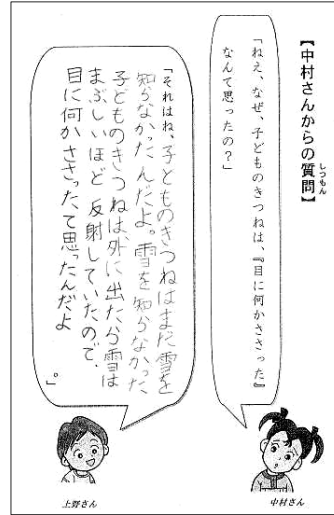 【中村さんからの質問】
しつもん
「ねえ、なぜ、子どものきつねは、『目に何かささった』
なんて思ったの?」
「それはね、子どものきつねはまだ雪を
知らなかったんだよ。雪を知らなかった
子どものきつねは、外に出たら雪は
まぶしいほど反射していたので、
目に何かささったて思ったんだよ
。」
中村さん
上野さん